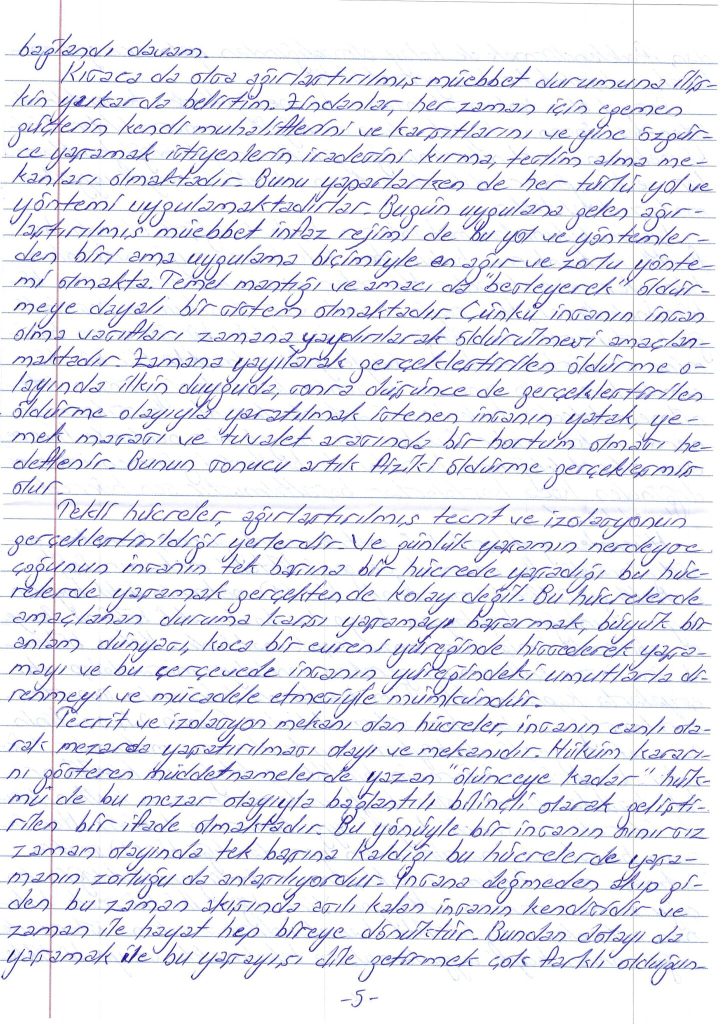 bağlandı davam.
Kısaca da olsa ağırlaştırılmış müebbet durumuna iliş-
kin yukarda belirttim. Zindanlar, her zaman için egemen
güçlerin kendi muhaliflerini ve karşıtlarını ve yine özgür-
ce yaşamak istiyenlerin iradesini kırma, teslim alma me-
kanları olmaktadır. Bunu yaparlarken de her türlü yol ve
yöntemi uygulamaktadırlar. Bugün uygulana gelen ağır-
laştırılmış müebbet infaz rejimi de bu yol ve yöntemler-
den biri ama uygulama biçimiyle en ağır ve zorlu yönte-
mi olmakta. Temel mantığı ve amacı da "besleyerek" öldür-
meye dayalı bir sistem olmaktadır. Çünkü insanın insan
olma vasıfları zamana yaydırılarak öldürülmesi amaçlan-
maktadır. Zamana yayılarak gerçekleştirilen öldürme o-
layında ilkin duyguda, sonra düşünce de gerçekleştirilen
öldürme olayıyla yaratılmak istenen insanın yatak, ye-
mek masası ve tuvalet arasında bir hortum olması he-
deflenir. Bunun sonucu artık fiziki öldürme gerçekleşmiş
olur.
Tekli hücreler, ağırlaştırılmış tecrit ve izolasyonun
gerçekleştirildiği yerlerdir. Ve günlük yaşamın nerdeyse
çoğunun insanın tek başına bir hücrede yaşadığı bu hüc-
relerde yaşamak gerçekten de kolay değil. Bu hücrelerde
amaçlanan duruma karşı yaşamayı başarmak, büyük bir
anlam dünyası, koca bir evreni yüreğinde hissederek yaşa-
mayı ve bu çerçevede insanın yüreğindeki umutlarla di-
renmeyi ve mücadele etmesiyle mümkündür.
Tecrit ve izolasyon mekanı olan hücreler, insanın canlı ola-
rak mezarda yaşatırılması olayı ve mekanıdır. Hüküm kararı-
nı gösteren müddetnamelerde yazan "ölünceye kadar" hük-
mü de bu mezar olayıyla bağlantılı bilinçli olarak gelişti-
rilen bir ifade olmaktadır. Bu yönüyle bir insanın sınırsız
zaman olayında tek başına kaldığı bu hücrelerde yaşa-
manın zorluğu da anlaşılıyordur. İnsana değmeden akıp gi-
den bu zaman akışında asılı kalan insanın kendisidir ve
zaman ile hayat hep bireye dönüktür. Bundan dolayı da
yaşamak ile bu yaşayışı dile getirmek çok farklı olduğun-
-5-